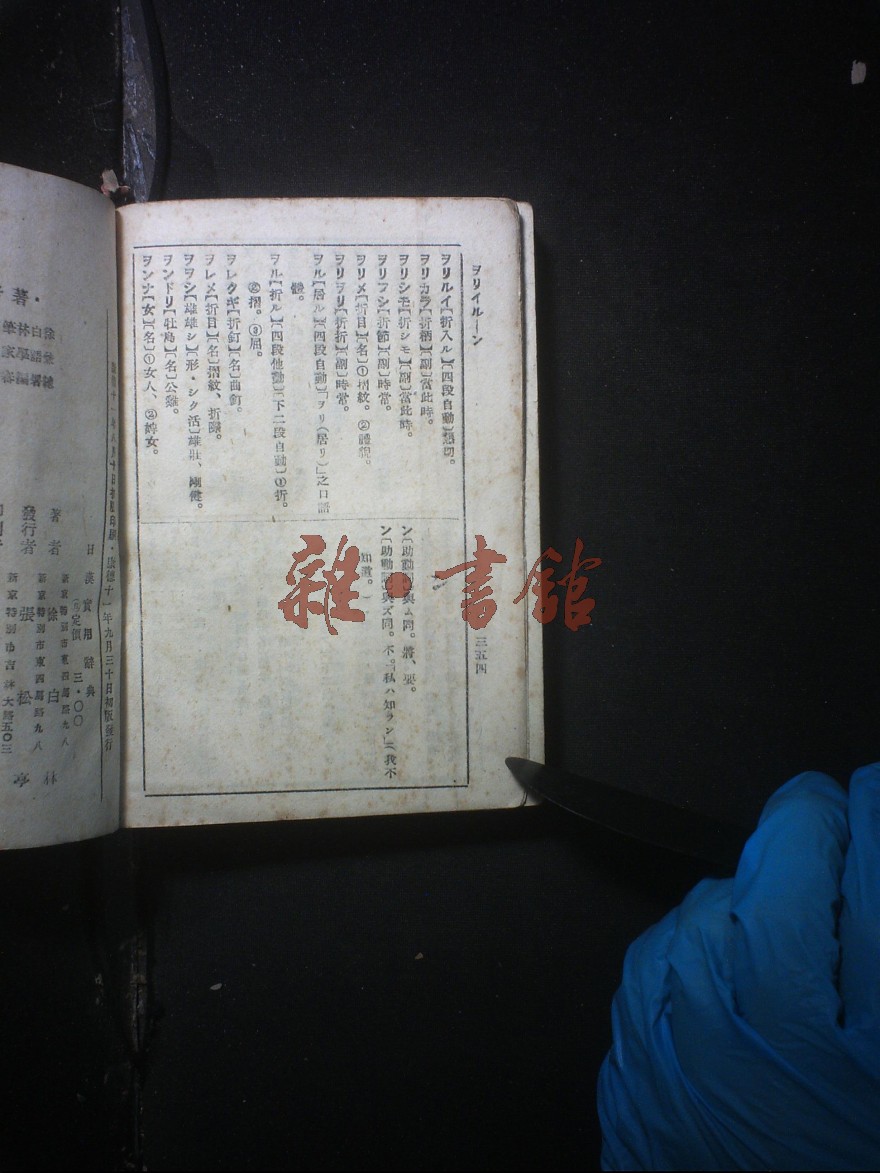 ヲリイルーン
三五四
ヲリルイ【折入ル】〔四段自動〕懇切。
ヲリカラ【折柄】〔副〕當此時。
ヲリシモ【折シモ】〔副〕當此時。
ヲリフシ【折節】〔副〕時常。
ヲリメ【折目】〔名〕①摺紋。②禮貌。
ヲリヲリ【折折】〔副〕時常。
ヲル【居ル】〔四段自動〕「ヲリ(居リ)」之口語
體。
ヲル【折ル】〔四段他動〕〔下二段自動〕①折。
②摺。③屈。
ヲレクギ【折釘】〔名〕曲釘。
ヲレメ【折目】〔名〕摺紋、折際。
ヲヲシ【雄雄シ】〔形・シク活〕雄壯、剛健。
ヲンドリ【牡鳥】〔名〕公雞。
ヲンナ【女】〔名〕①女人、②婢女。
ン〔助動〕與ム同。將、要。
ン〔助動〕與ズ同。不。「私ハ知ラン」=我不
知道。
雜・書館
康德十一年九月三十日初版發行
日漢實用辭典
定價 三・〇〇
新京特別市東四馬路九八
著者 徐白林
新京特別市東四馬路九八
發行者 張松亭
新京特別市吉林大路五〇三